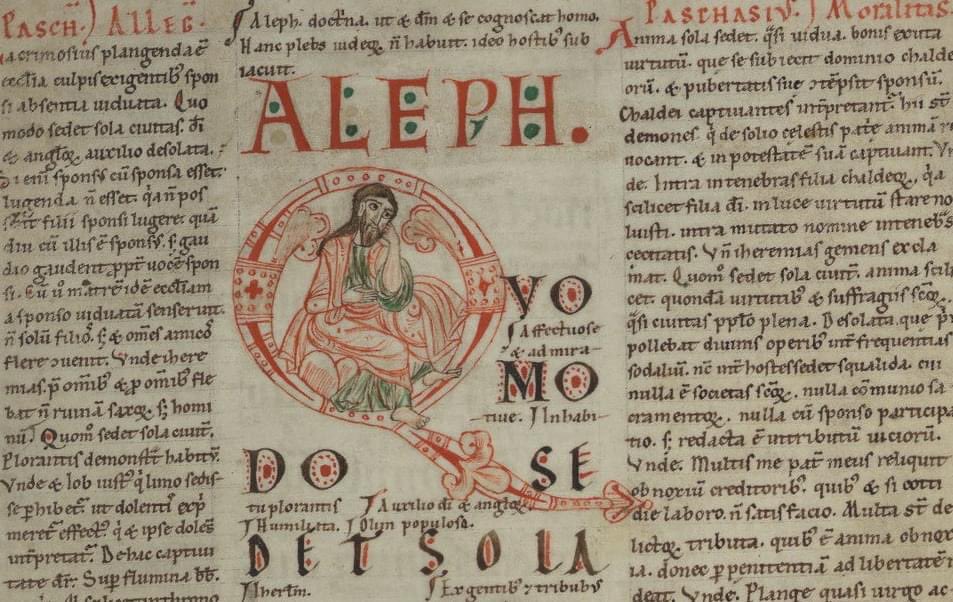 PASCH. ALLEG.
acrimosius plangenda ē
eccl̄ia culpis exigentibꝰ spon
si absentia uiduata. Quo
modo sedet sola ciuitas. d̄i
& angl̄oꝝ auxilio desolata.
Si eni sponsꝰ cū sponsa esset.
lugenda n̄ esset. q̇a n̄ pos
sūt filii sponsi lugere. quā
diu cū illis ē sponsꝰ. ſ; gau
dio gaudent ꝓpt̄ uocē spon
si. matrē idē eccl̄iam
a sponso uiduatā senserunt.
n̄ solū filio. ſ; & om̄es amico
flere ꝯuenit. Vnde ihere
mias. p̄ omībꝰ & ꝓ omībꝰ fle
bat n̄ ruinā saxoꝝ. ſ; homi
nū. Quom̊ sedet sola ciuit̄.
Plorantis demonst̄t habitū.
Vnde & Iob iustꝰ q̇ limo sedis-
se ꝑhibet̄. ut dolenti exp̄
meret effect̄. q̇ & ipse doles
int̄pretat̄. De hac captiui
tate d̄r. Sup flumina bb̄.
Aleph. doct̄na. ut & d̄m & se cognoscat homo.
Hanc plebs iudeoꝝ n̄ habuit. ideo hostibꝰ sub
iacuit.
ALEPH.
QVO
Affectuose
& admira-
MO
tiue. Inhabi-
DO SE
tu plorantis Auxilio d̄i & angl̄oꝝ
Humiliata. Olim populosa.
DET SOLA
Ihrl̄m. Exgentibꝰ ⁊ tribubꝰ
PASCHASIVS. Moralitas.
Anima sola sedet. q̇si uidua. bonis exuta
uirtutū. que se subiecit dominio chalde
orū. & pubertatis sue ꝯtēpsit sponsū.
Chaldei captiuantes int̄pretant̄. hii st̄
demones. q̇ de solio celestis pat̄e animā
nocant. & in potestatē suā captiuant. Vn
de. Intra in tenebras filia chaldeoꝝ, q̇a
scilicet filia d̄i. in luce uirtutū stare no
luisti. intra mutato nomine in tenebꝰ
cecitatis. Vn̄ iheremias gemens excla
mat. Quom̊ sedet sola ciuit̄. anima scili
cet. quondā uirtutibꝰ & suffragiis sc̄oꝝ.
q̇si ciuitas pp̄lo plena. Desolata. que p̄
pollebat diuinis operibꝰ int̄ frequentias
sodaliū. nc̄ int̄ hostes sedet squalida. cui
nulla ē societas sc̄oꝝ. nulla cōmunio sa
cramentoꝝ. nulla cū sponso participa
tio. ſ; redacta ē in tributū uicioꝝ.
Vnde. Multis me pat̄ meus reliquit
obnoxiū creditoribꝰ. quibꝰ & si cotti
die laboro. n̄ satisfacio. Multa st̄ de
lictoꝝ tributa. quibꝰ ē anima obnox
ia. donec ꝑ penitentiā ad libertatē
deat. Vnde. Plange quasi uirgo ac-